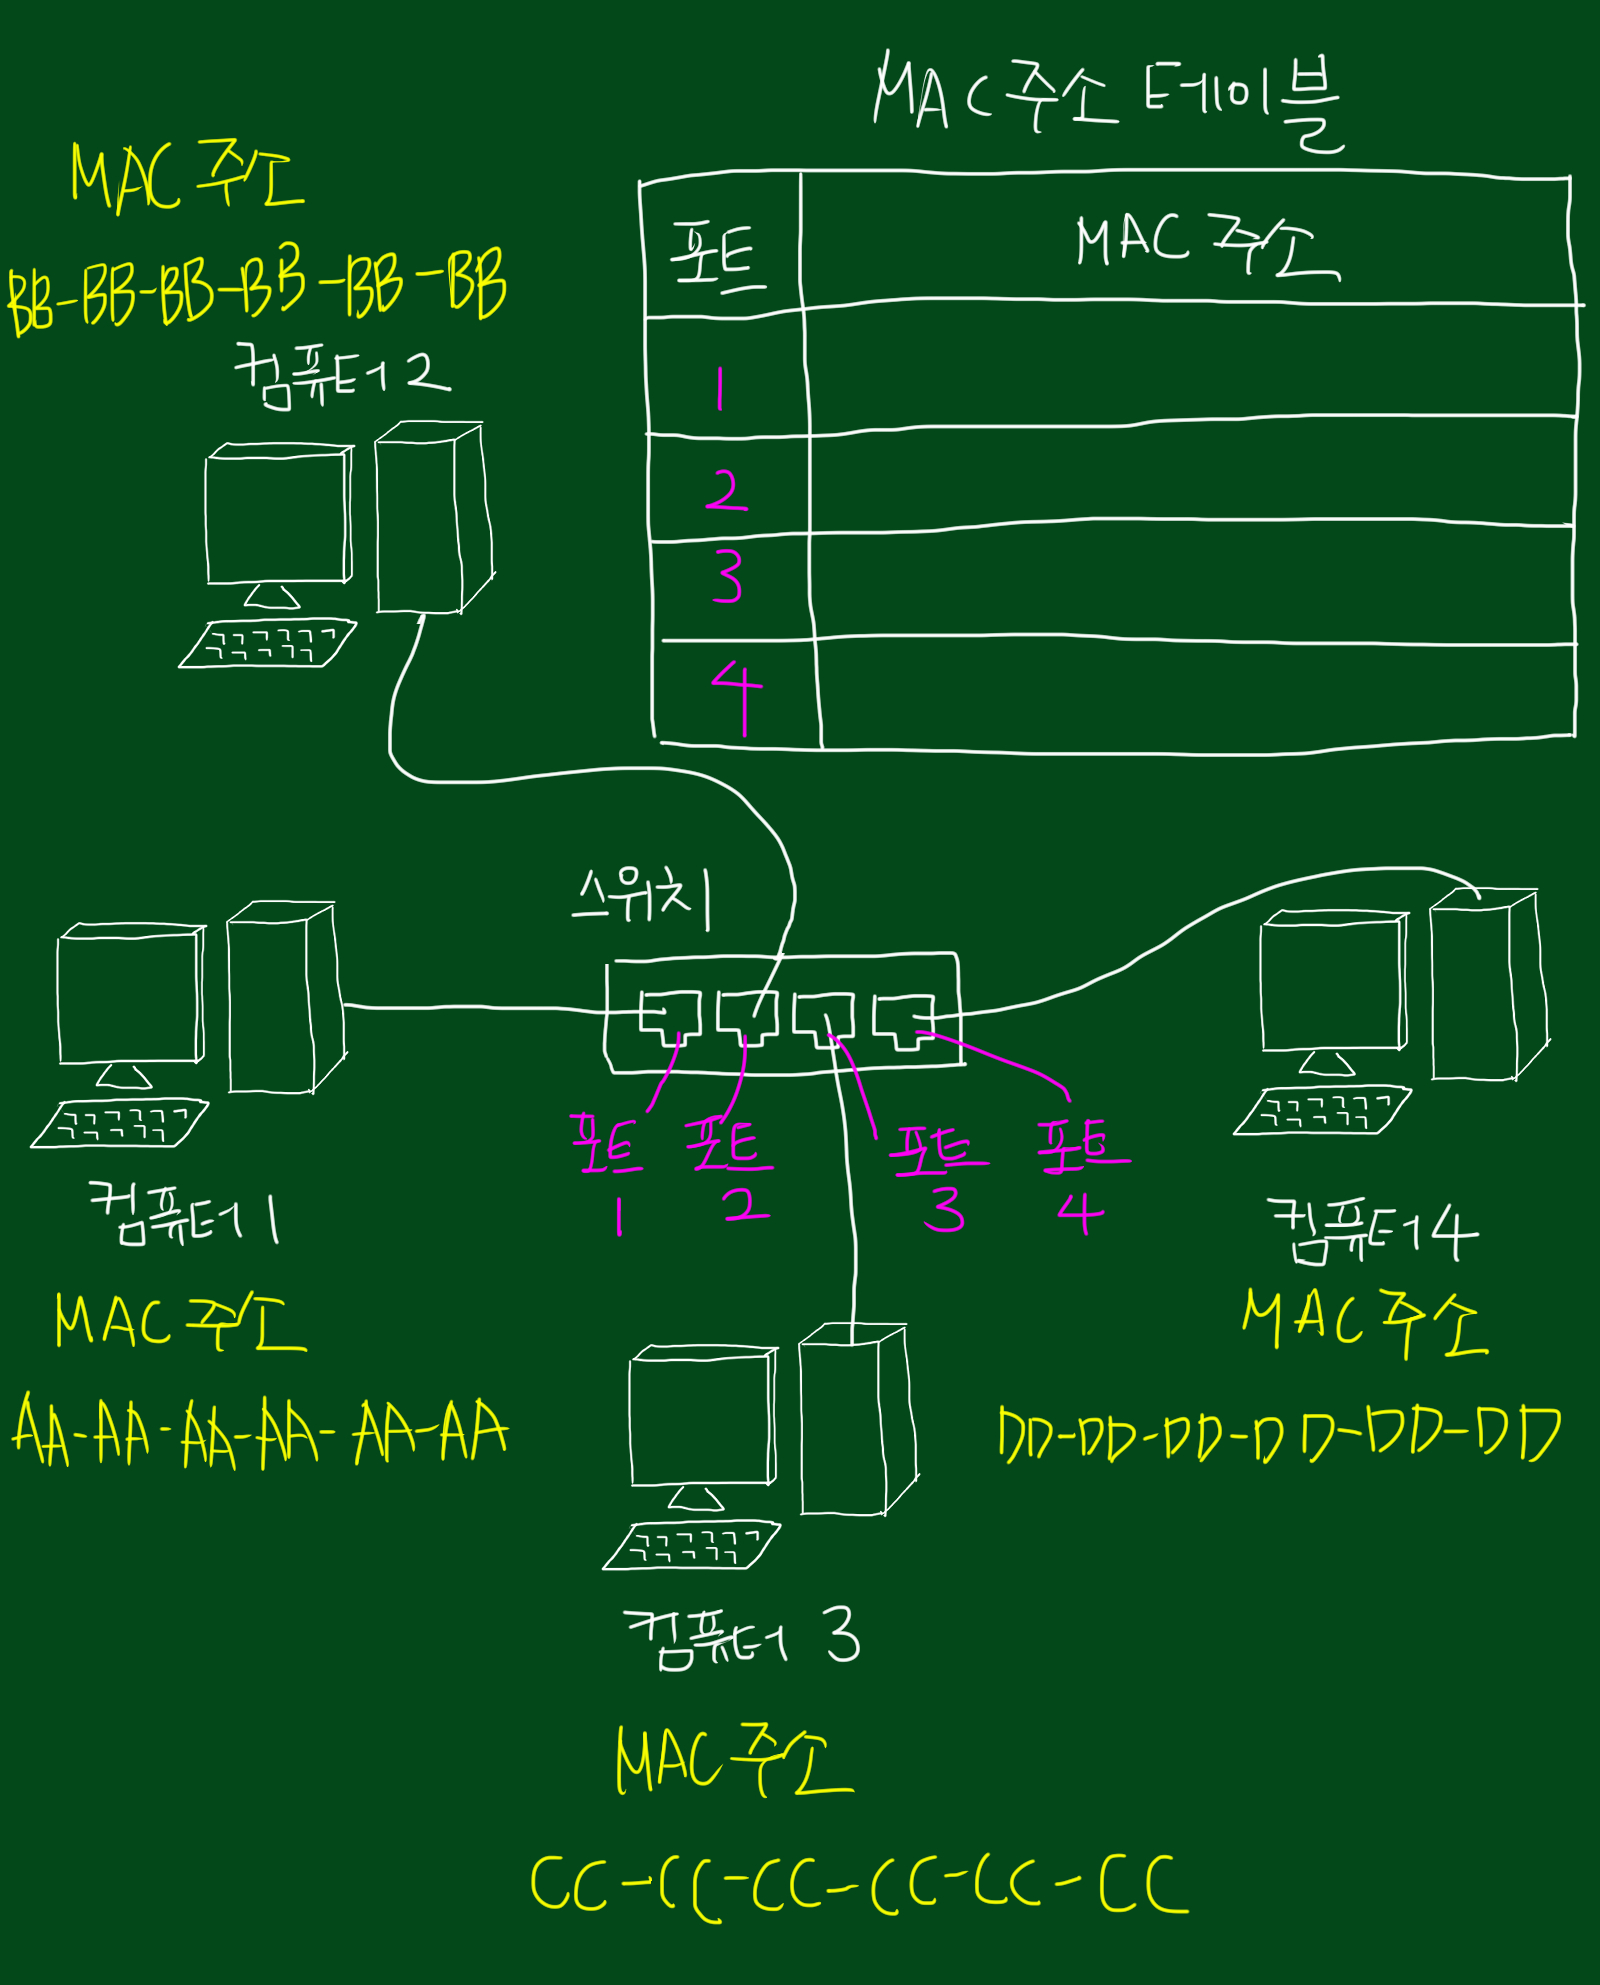 MAC 주소 테이블
포트 MAC 주소
1
2
3
4
MAC 주소
BB-BB-BB-BB-BB-BB
컴퓨터 2
스위치
포트 1
포트 2
포트 3
포트 4
컴퓨터 1
MAC 주소
AA-AA-AA-AA-AA-AA
컴퓨터 4
MAC 주소
DD-DD-DD-DD-DD-DD
컴퓨터 3
MAC 주소
CC-CC-CC-CC-CC-CC